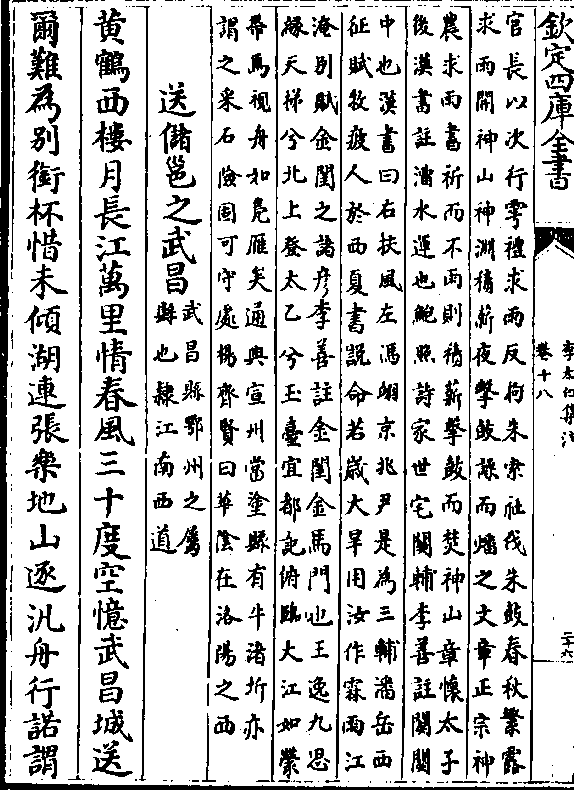 欽定四庫全書
李太白集注
卷十八
二十六
官長以次行雩禮求雨反拘朱索社伐朱鼓春秋繁露
求雨開神山神淵積薪夜擊鼓譟而燔之文章正宗神
農求雨書祈而不雨則積薪擊鼓而焚神山章懷太子
後漢書註漕水運也鮑照詩家世宅關輔李善註關關
中也漢書曰右扶風左馮翊京兆尹是為三輔潘岳西
征賦牧疲人於西夏書說命若嵗大旱用汝作霖雨江
淹别賦金閨之諸彦李善註金閨金馬門也王逸九思
縁天梯兮北上登太乙兮玉臺宜都記俯臨大江如縈
帶焉視舟如鳬雁矣通典宣州當塗縣有牛渚圻亦
謂之采石險固可守處楊齊賢曰華陰在洛陽之西
送儲邕之武昌
武昌縣鄂州之屬
縣也隷江南西道
黄鶴西樓月長江萬里情春風三十度空憶武昌城送
爾難為别銜杯惜未傾湖連張樂地山逐汎舟行諾謂